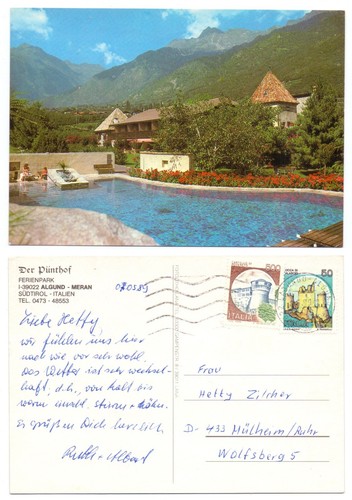 Der Pünthof
FERIENPARK
I-39022 ALGUND - MERAN
SÜDTIROL - ITALIEN
TEL. 0473 - 48553
070589
500
50
ITALIA
Liebe Hetty,
wir fühlen uns hier
nach wie vor sehr wohl.
Das Wetter ist sehr wechsel-
haft, d.h., von kalt bis
warm
es grüßen Dich herzlich
Ruth + Albert
Frau
Hetty Zitcher
D- 433 Mülheim/Ruhr
Wolfsberg 5